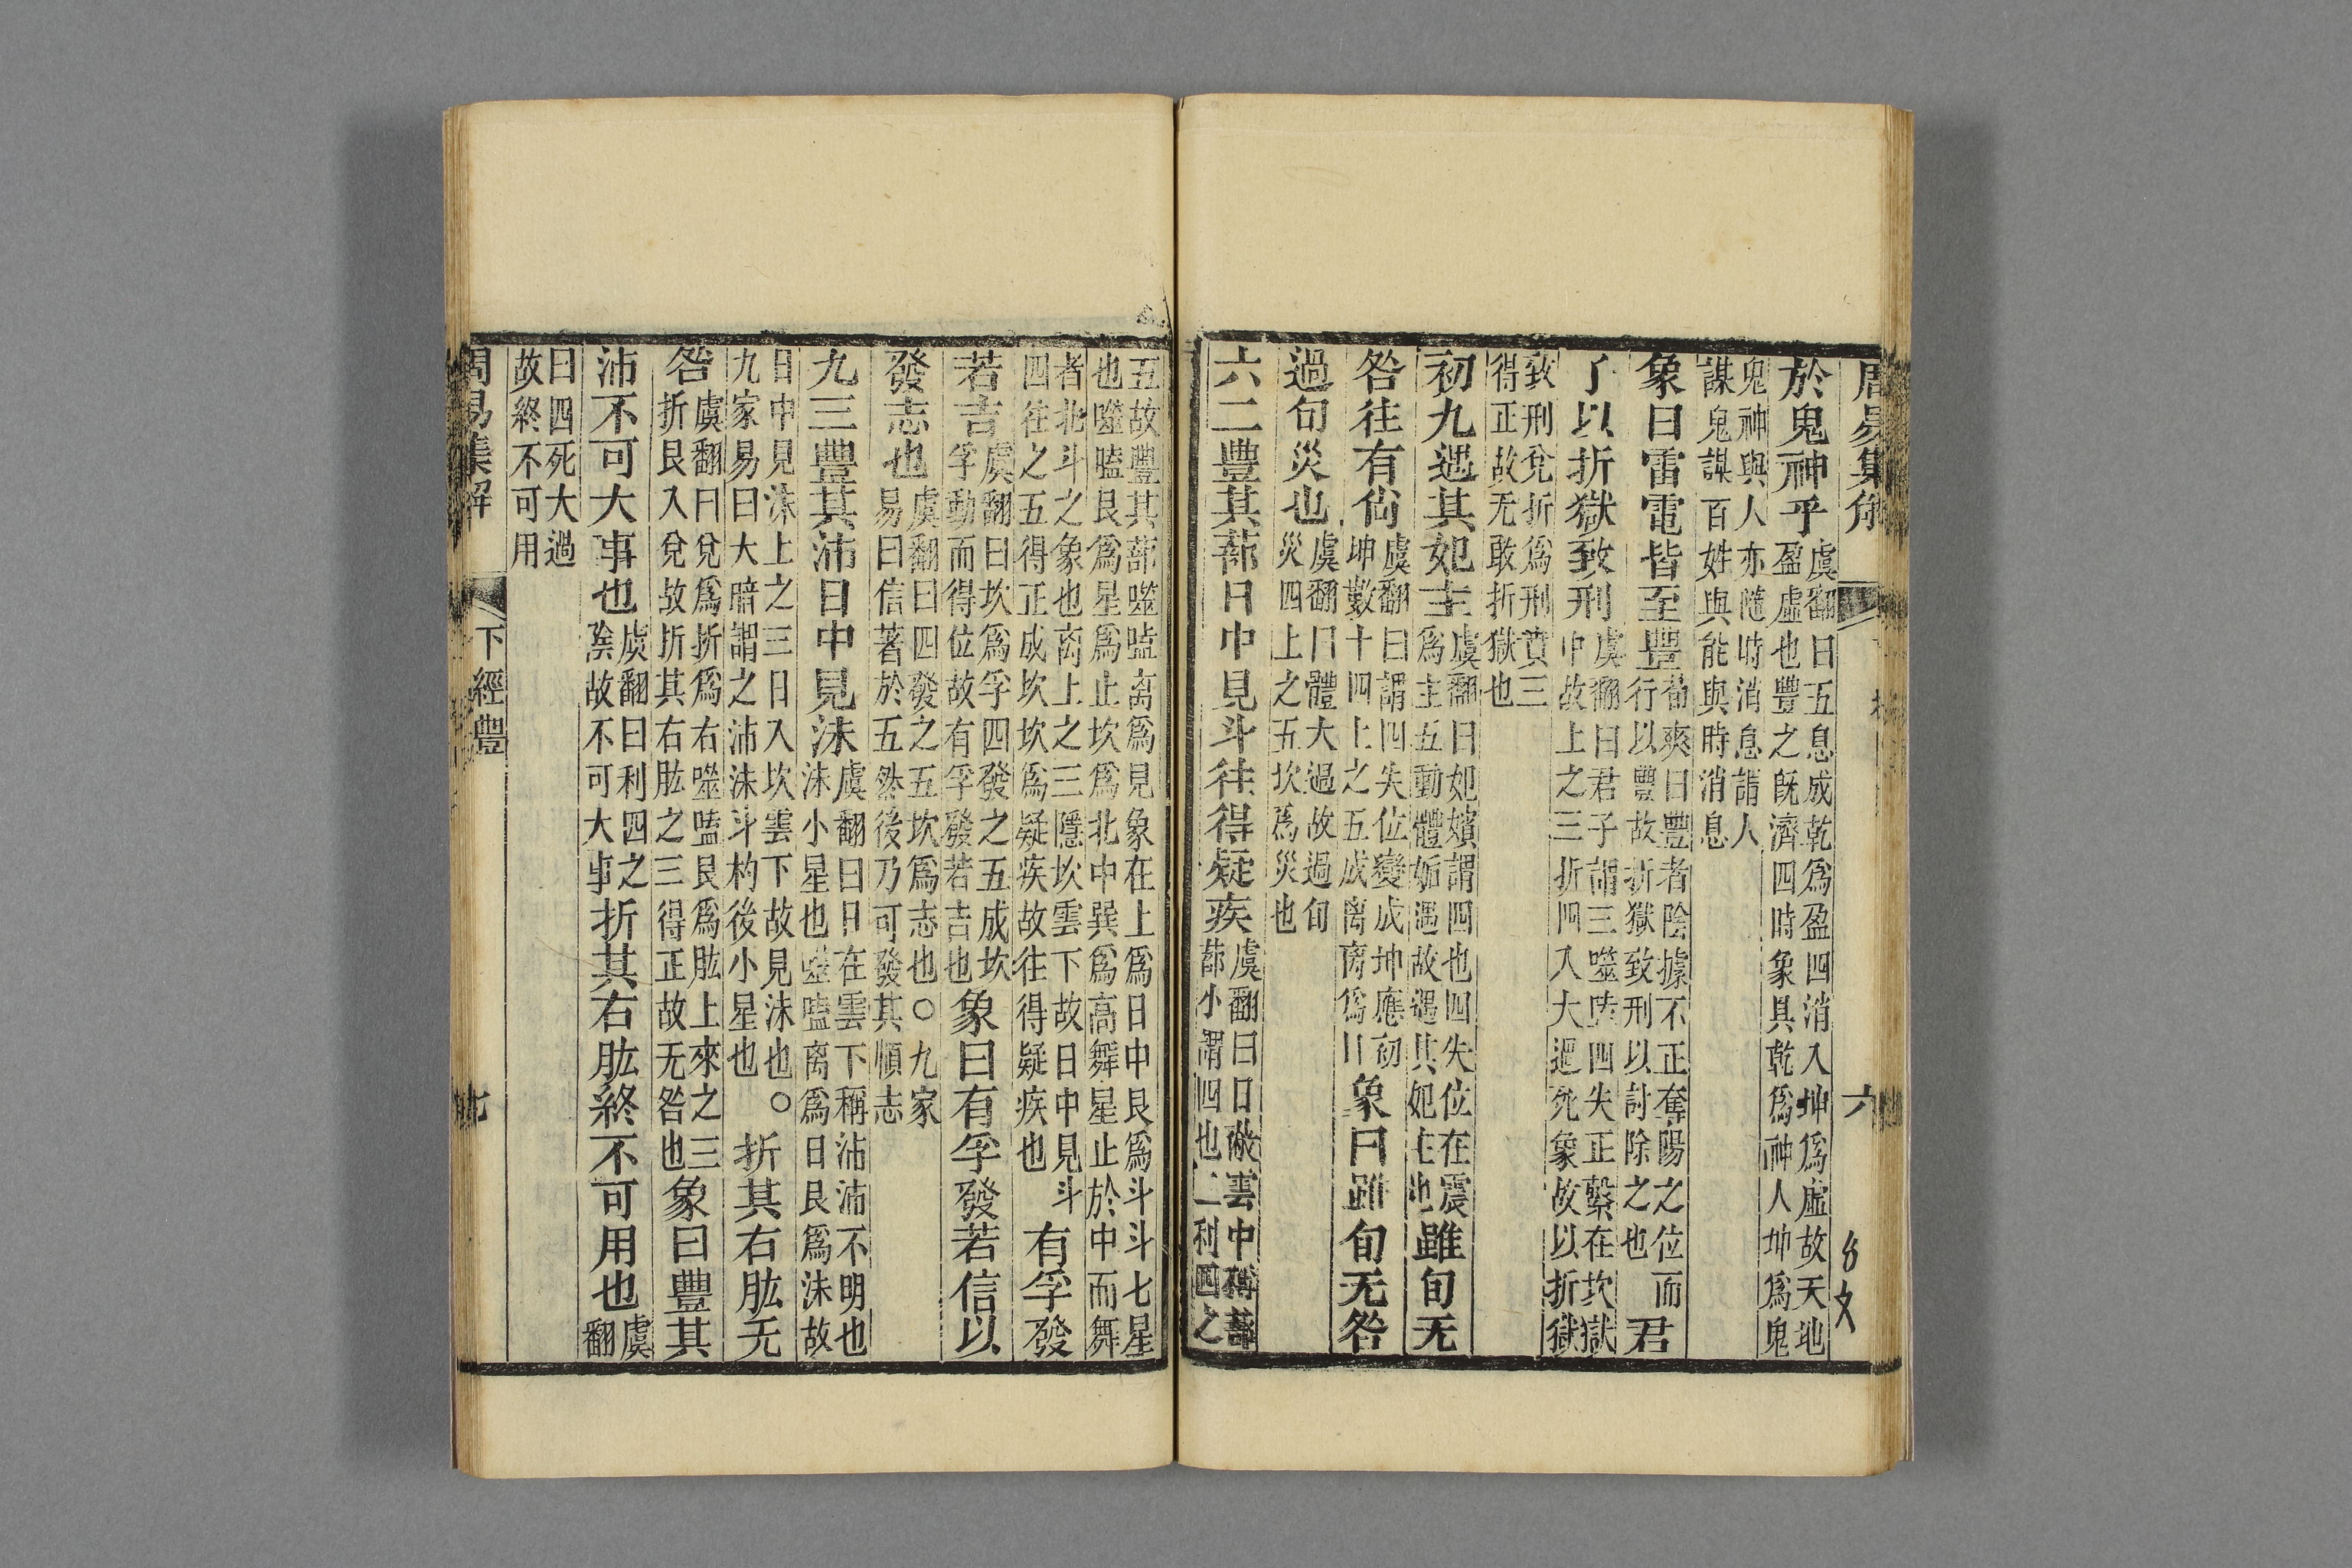 周易集解 六
於鬼神乎虞翻曰五息成乾爲盈四消入坤爲虛故天地盈虛也豐之旣濟四時象具乾爲神人坤爲鬼
鬼神與人亦隨時消息謂人謀鬼謀百姓與能與時消息
象曰雷電皆至豐荀爽曰豐者陰據不正奪陽之位而行以豐故折獄致刑以討除之也君
子以折獄致刑虞翻曰君子謂三噬嗑四失正繫在坎獄中故上之三折四入大過死象故以折獄
致刑兌折爲刑賁三得正故无敢折獄也
初九遇其妃主虞翻曰妃嬪謂四也四失位在震爲主五動體姤遇故遇其妃主也雖旬无
咎往有尙虞翻曰謂四失位變成坤應初坤數十四上之五成离离爲日象曰雖旬无咎
過旬災也虞翻曰體大過故過旬災四上之五坎爲災也
六二豐其蔀日中見斗往得疑疾虞翻曰日蔽雲中稱蔀蔀小謂四也二利四之
五故豐其蔀噬嗑离爲見象在上爲日中艮爲斗斗七星也噬嗑艮爲星爲止坎爲北中巽爲高舞星止於中而舞
者北斗之象也离上之三隱坎雲下故日中見斗四往之五得正成坎坎爲疑疾故往得疑疾也有孚發
若吉虞翻曰坎爲孚四發之五成坎孚動而得位故有孚發若吉也象曰有孚發若信以
發志也虞翻曰四發之五坎爲志也○九家易曰信著於五然後乃可發其順志
九三豐其沛日中見沬虞翻曰日在雲下稱沛沛不明也沬小星也噬嗑离爲日艮爲沬故
日中見沬上之三日入坎雲下故見沬也○九家易曰大暗謂之沛沬斗杓後小星也折其右肱无
咎虞翻曰兌爲折爲右噬嗑艮爲肱上來之三折艮入兌故折其右肱之三得正故无咎也象曰豐其
沛不可大事也虞翻曰利四之陰故不可大事折其右肱終不可用也虞翻
曰四死大過故終不可用
周易集解 下經豐 七